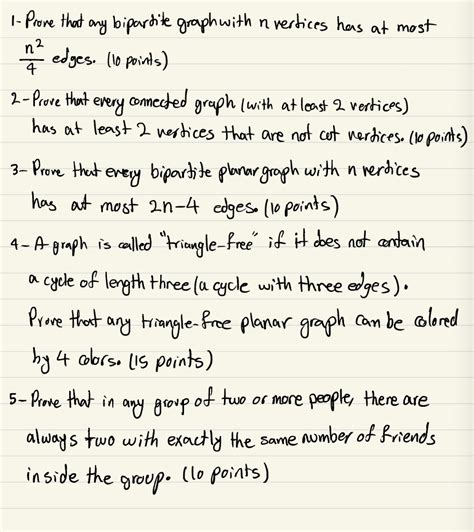 1- Prove that any bipartite graph with n vertices has at most
n²/4 edges. (10 points)
2- Prove that every connected graph (with at least 2 vertices)
has at least 2 vertices that are not cut vertices. (10 points)
3- Prove that every bipartite planar graph with n vertices
has at most 2n-4 edges. (10 points)
4- A graph is called "triangle-free" if it does not contain
a cycle of length three (a cycle with three edges).
Prove that any triangle-free planar graph can be colored
by 4 colors. (15 points)
5- Prove that in any group of two or more people, there are
always two with exactly the same number of friends
inside the group. (10 points)